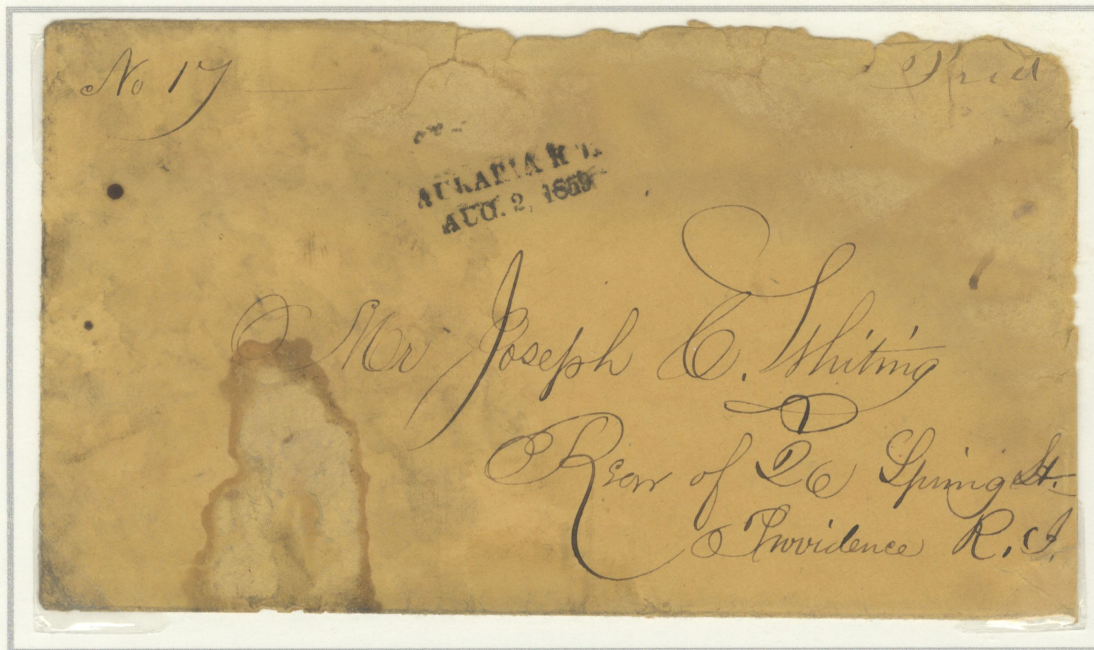 No 17
Paid
AURARIA K T.
AUG. 2, 1859
Mr Joseph C. Whiting
Rear of 26 Spring St.
Providence R. I.